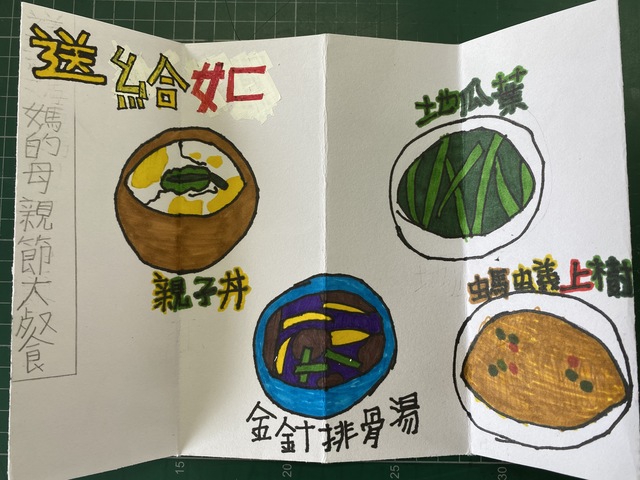 送給如
媽的母親節大餐
地瓜葉
親子丼
螞蟻上樹
金針排骨湯
15
20
25
30